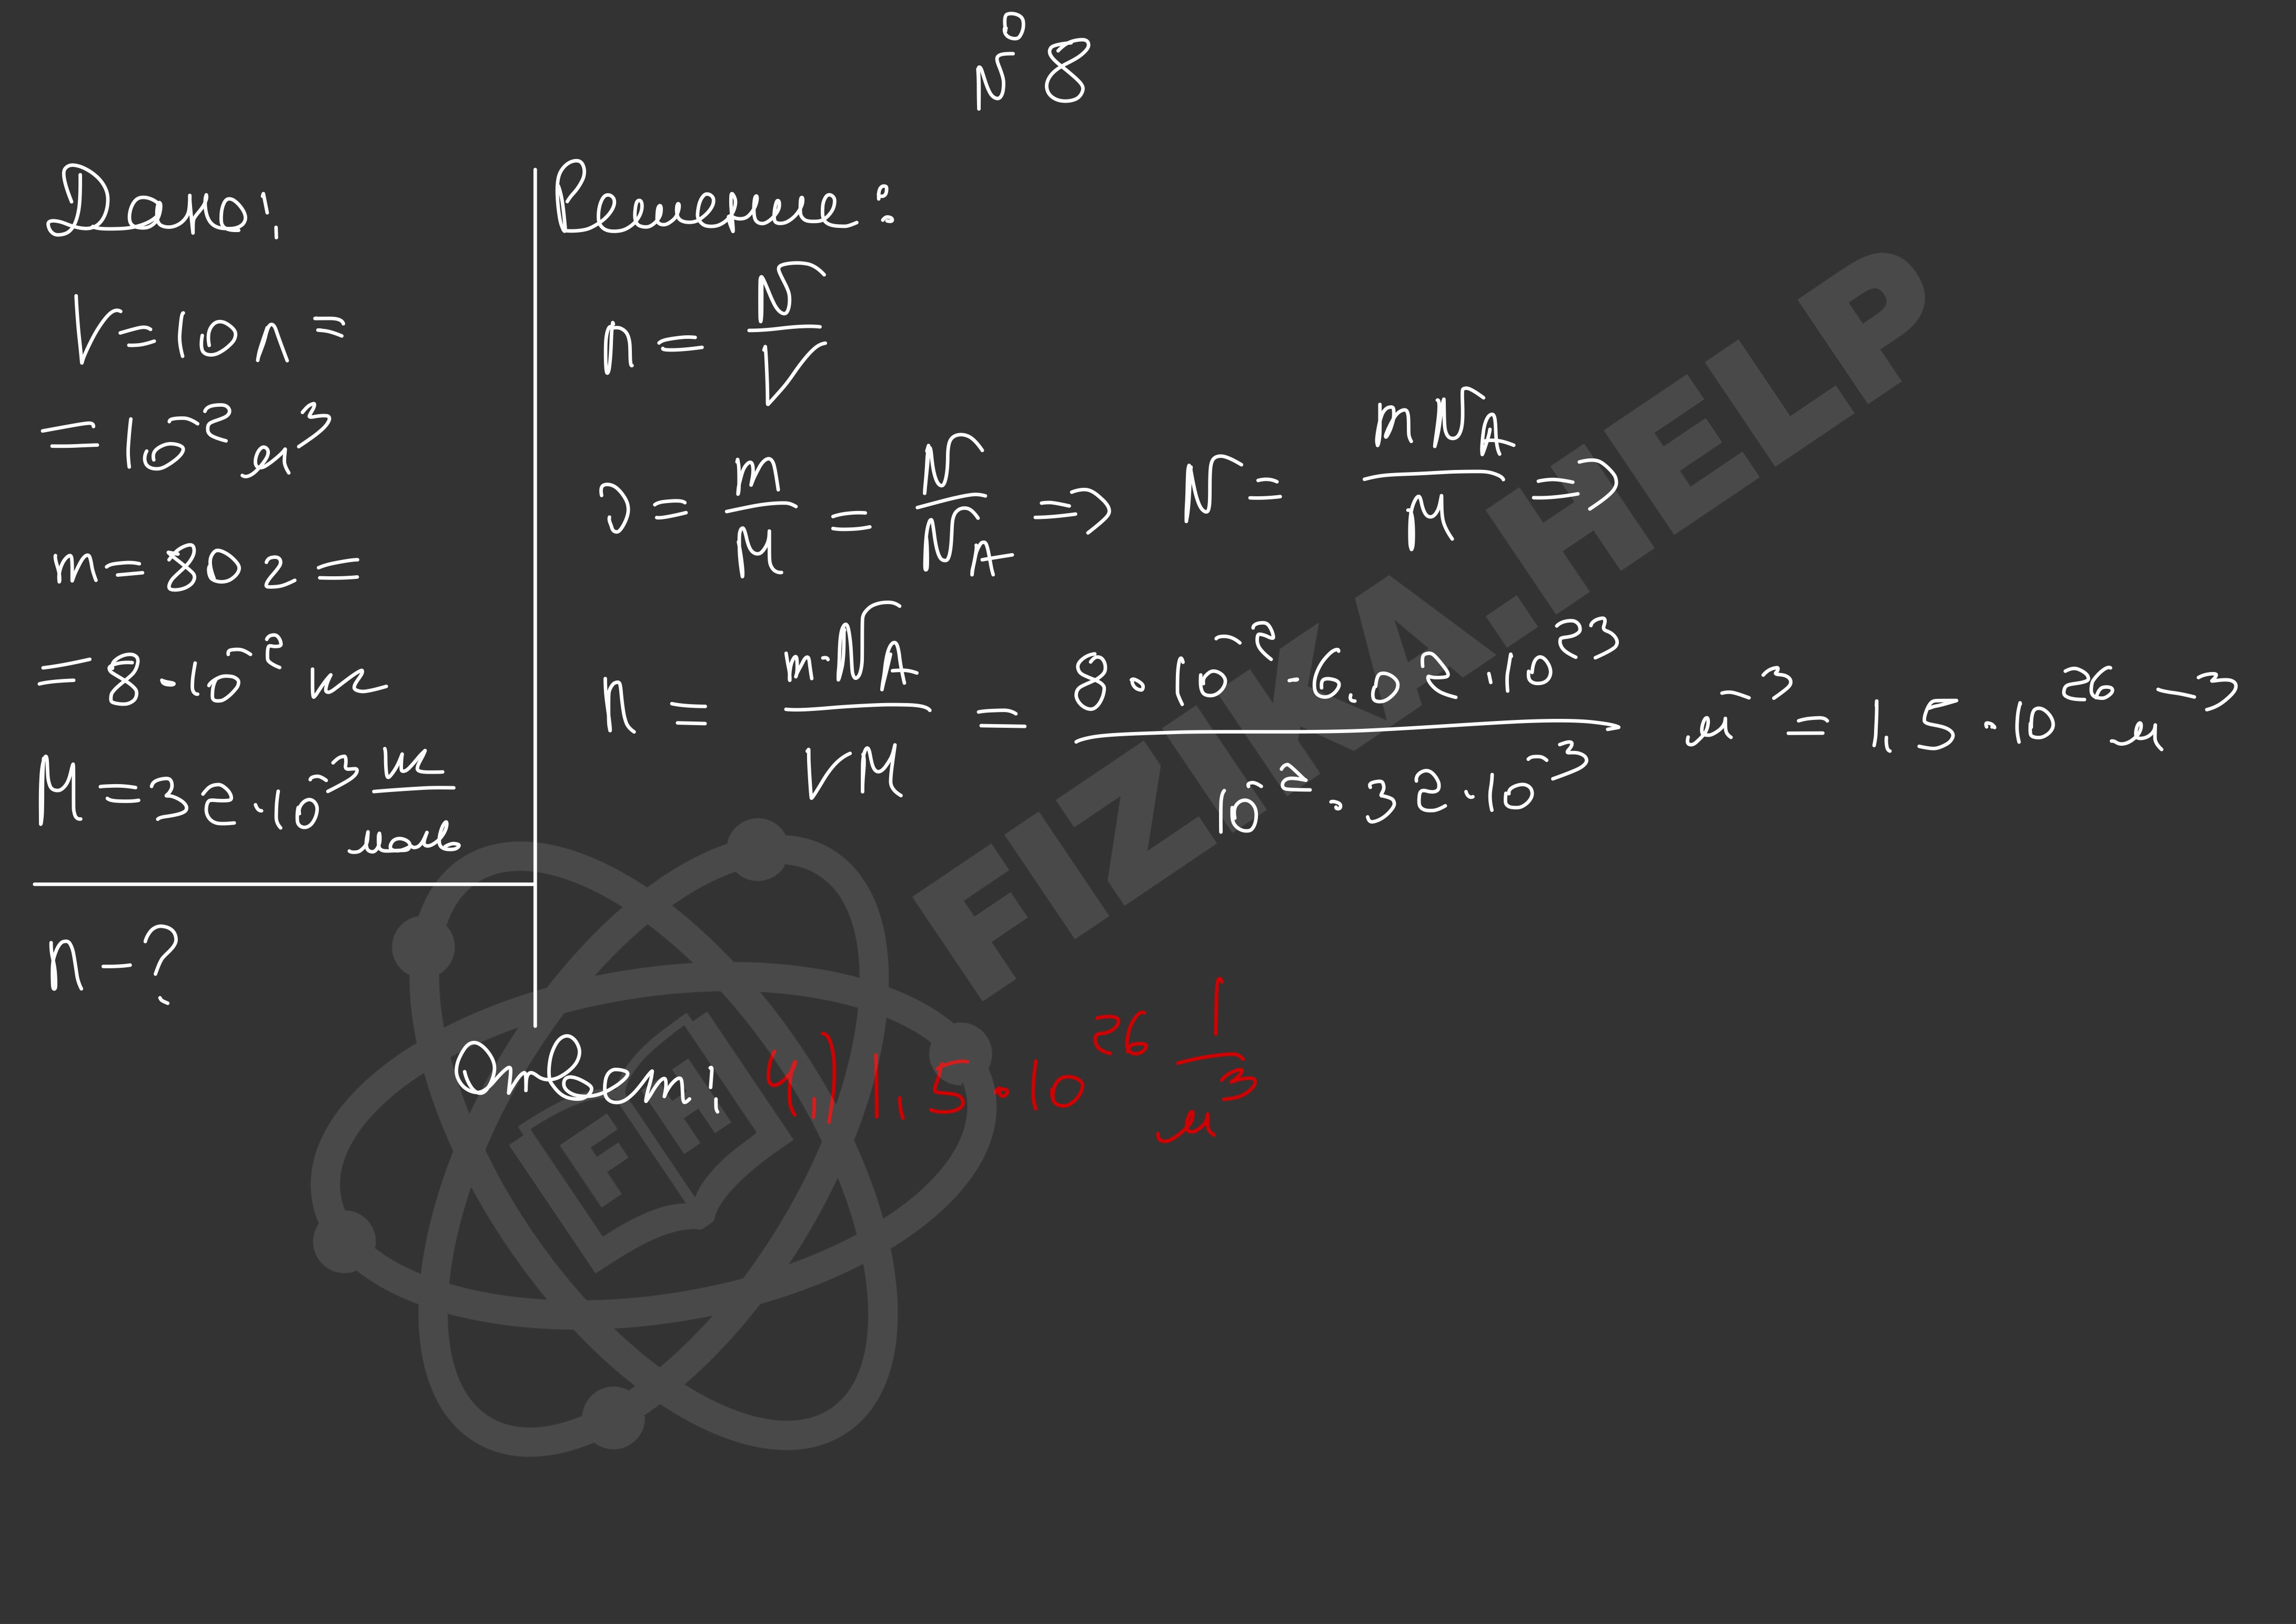 №8
Дано:
V = 10 л =
= 10⁻² м³
m = 80 г =
= 8 · 10⁻² кг
M = 32 · 10⁻³ кг/моль
n - ?
Решение:
n = N/V
ν = m/M = N/N_A => N = mN_A/M =>
n = m·N_A/VM = 8 · 10⁻² · 6,02 · 10²³/10⁻² · 32 · 10⁻³ м⁻³ = 1,5 · 10²⁶ м⁻³
Ответ: 4) 1,5 · 10²⁶ 1/м³
FIZIKA.HELP
FH